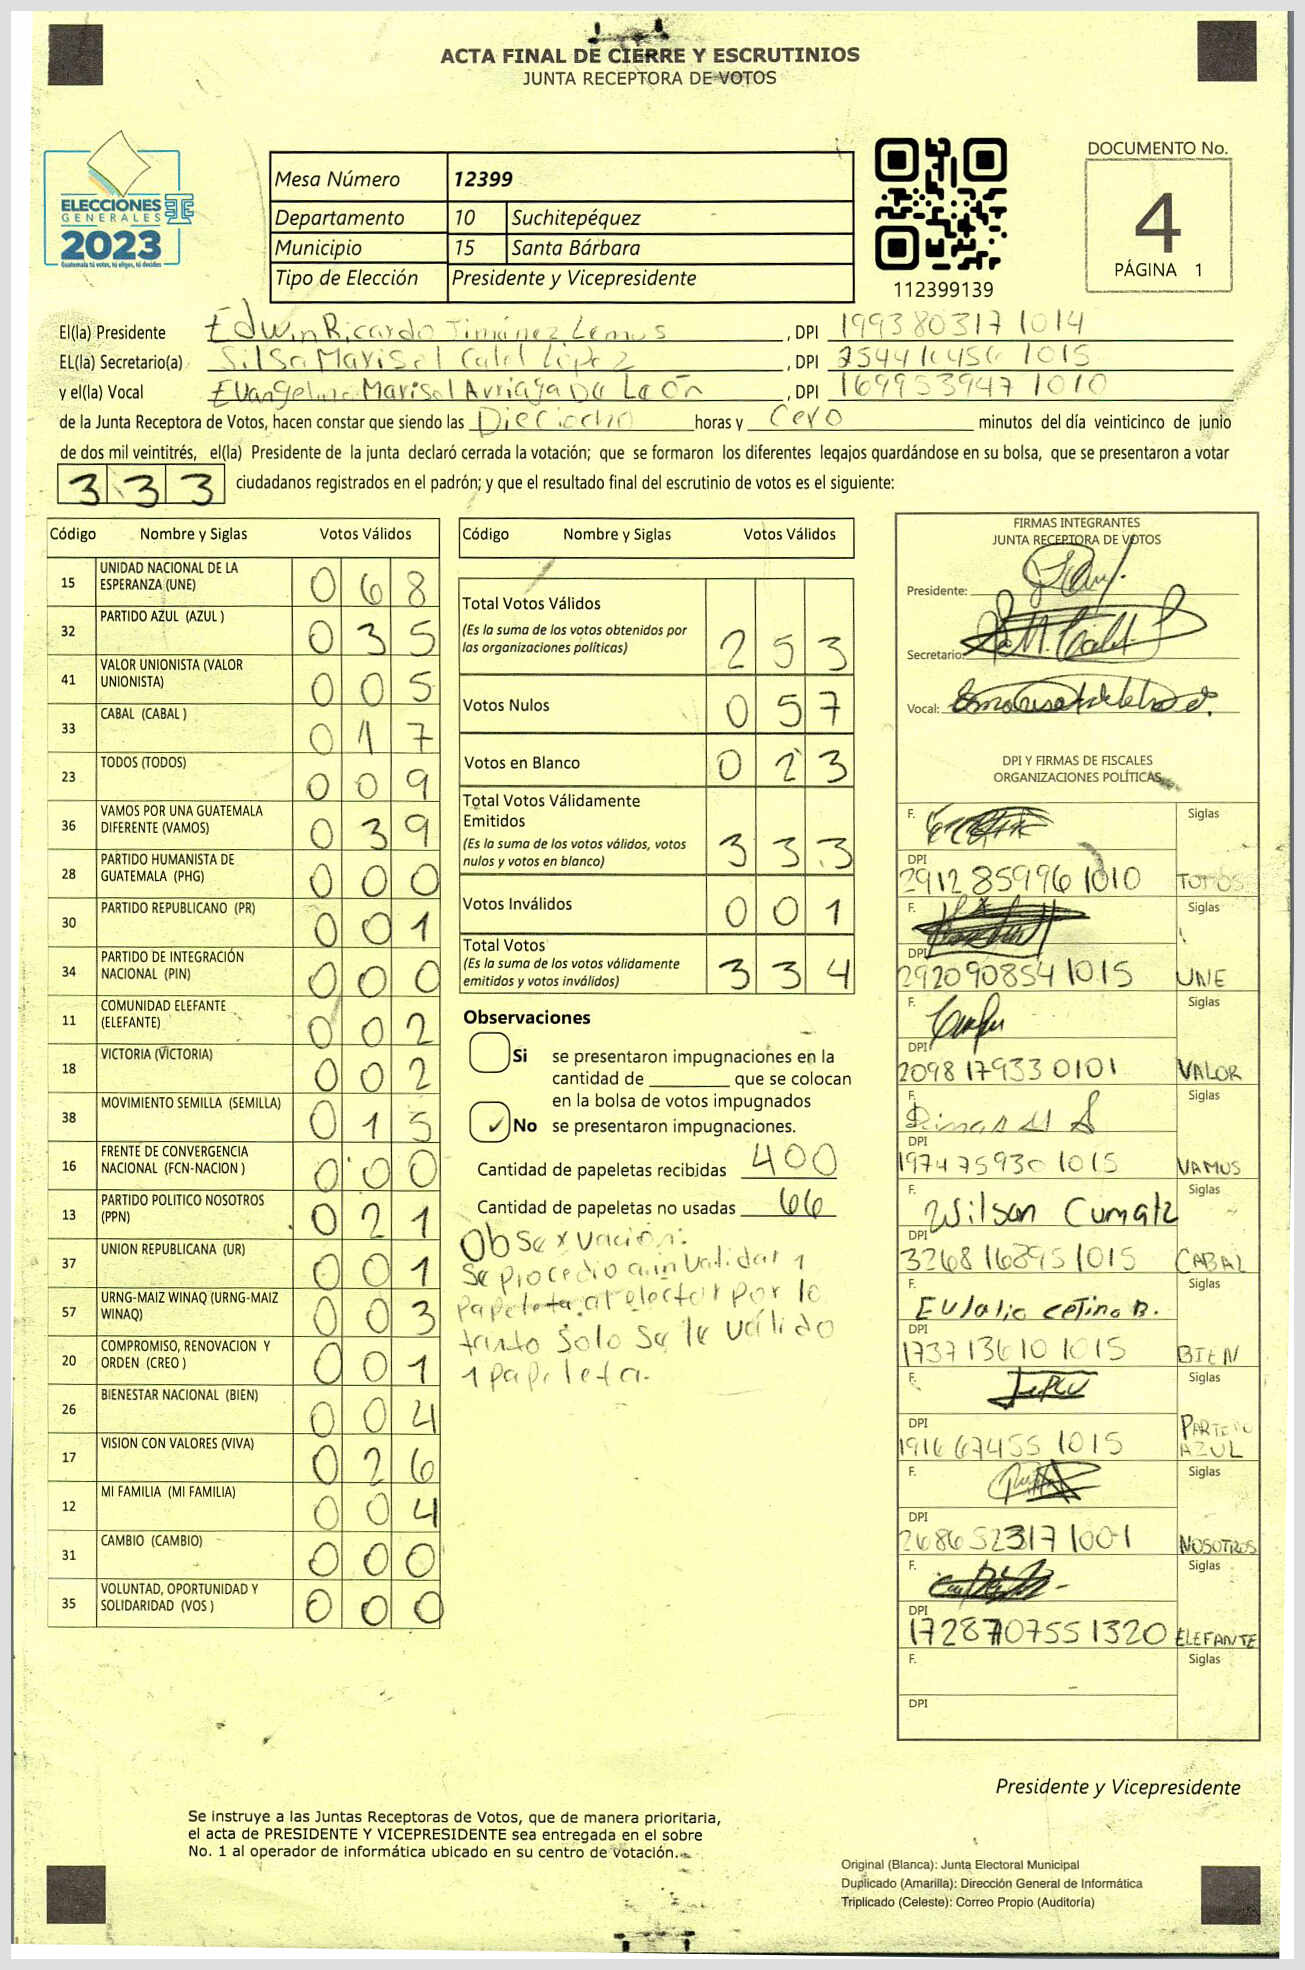 ACTA FINAL DE CIERRE Y ESCRUTINIOS
JUNTA RECEPTORA DE VOTOS
ELECCIONES
GENERALES
2023
Guatemala tú votas, tú eliges, tú decides
Mesa Número 12399
Departamento 10 Suchitepéquez
Municipio 15 Santa Bárbara
Tipo de Elección Presidente y Vicepresidente
112399139
DOCUMENTO No.
4
PÁGINA 1
El(la) Presidente Edwin Ricardo Jiménez Lemus, DPI 199380317 1014
EL(la) Secretario(a) Silsa Marisol López, DPI 1015
y el(la) Vocal Evangelina Marisol Arriaga De León, DPI 169953947 1010
de la Junta Receptora de Votos, hacen constar que siendo las Dieciocho horas y Cero minutos del día veinticinco de junio
de dos mil veintitrés, el(la) Presidente de la junta declaró cerrada la votación; que se formaron los diferentes legajos guardándose en su bolsa, que se presentaron a votar
333 ciudadanos registrados en el padrón; y que el resultado final del escrutinio de votos es el siguiente:
Código Nombre y Siglas Votos Válidos
15 UNIDAD NACIONAL DE LA ESPERANZA (UNE) 068
32 PARTIDO AZUL (AZUL ) 035
41 VALOR UNIONISTA (VALOR UNIONISTA) 005
33 CABAL (CABAL ) 017
23 TODOS (TODOS) 009
36 VAMOS POR UNA GUATEMALA DIFERENTE (VAMOS) 039
28 PARTIDO HUMANISTA DE GUATEMALA (PHG) 000
30 PARTIDO REPUBLICANO (PR) 001
34 PARTIDO DE INTEGRACIÓN NACIONAL (PIN) 000
11 COMUNIDAD ELEFANTE (ELEFANTE) 002
18 VICTORIA (VICTORIA) 002
38 MOVIMIENTO SEMILLA (SEMILLA) 015
16 FRENTE DE CONVERGENCIA NACIONAL (FCN-NACION ) 000
13 PARTIDO POLITICO NOSOTROS (PPN) 021
37 UNION REPUBLICANA (UR) 001
57 URNG-MAIZ WINAQ (URNG-MAIZ WINAQ) 003
20 COMPROMISO, RENOVACION Y ORDEN (CREO ) 001
26 BIENESTAR NACIONAL (BIEN) 004
17 VISION CON VALORES (VIVA) 026
12 MI FAMILIA (MI FAMILIA) 004
31 CAMBIO (CAMBIO) 000
35 VOLUNTAD, OPORTUNIDAD Y SOLIDARIDAD (VOS ) 000
Código Nombre y Siglas Votos Válidos
Total Votos Válidos 253
(Es la suma de los votos obtenidos por
las organizaciones políticas)
Votos Nulos 057
Votos en Blanco 023
Total Votos Válidamente
Emitidos 333
(Es la suma de los votos válidos, votos
nulos y votos en blanco)
Votos Inválidos 001
Total Votos 334
(Es la suma de los votos válidamente
emitidos y votos inválidos)
Observaciones
Si se presentaron impugnaciones en la
cantidad de ________ que se colocan
en la bolsa de votos impugnados
✓ No se presentaron impugnaciones.
Cantidad de papeletas recibidas 400
Cantidad de papeletas no usadas 66
Observación:
Se procedio a invalidar 1
papeleta al elector por lo
tanto solo se le válido
1 papeleta.
FIRMAS INTEGRANTES
JUNTA RECEPTORA DE VOTOS
Presidente:
Secretario:
Vocal:
DPI Y FIRMAS DE FISCALES
ORGANIZACIONES POLÍTICAS
F. Siglas
DPI
2912 85996 1010 TODOS
F. Siglas
DPI
292090854 1015 UNE
F. Siglas
DPI
2098 17933 0101 VALOR
F. Siglas
DPI
1974 75930 1015 VAMOS
F. Wilson Cumatz Siglas
DPI
3268 16895 1015 CABAL
F. Eulalio Cetino B. Siglas
DPI
1737 13610 1015 BIEN
F. Siglas
DPI
1916 67455 1015 PARTIDO AZUL
F. Siglas
DPI
2686 52317 1001 NOSOTROS
F. Siglas
DPI
1728707551320 ELEFANTE
F. Siglas
DPI
Presidente y Vicepresidente
Se instruye a las Juntas Receptoras de Votos, que de manera prioritaria,
el acta de PRESIDENTE Y VICEPRESIDENTE sea entregada en el sobre
No. 1 al operador de informática ubicado en su centro de votación.
Original (Blanca): Junta Electoral Municipal
Duplicado (Amarilla): Dirección General de Informática
Triplicado (Celeste): Correo Propio (Auditoría)